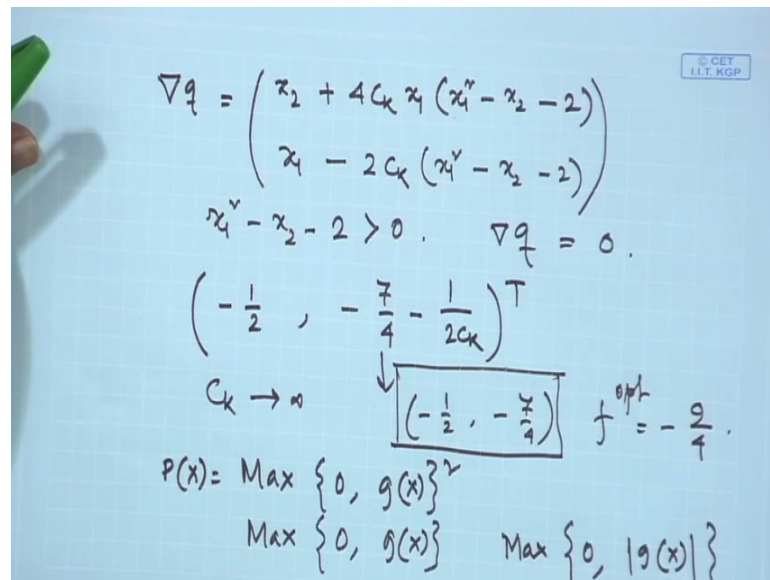 © CET
I.I.T. KGP
∇q = ( x₂ + 4Cₖ x₁ (x₁² - x₂ - 2)
x₁ - 2Cₖ (x₁² - x₂ - 2) )
x₁² - x₂ - 2 > 0. ∇q = 0.
(-1/2 , -7/4 - 1/2Cₖ)ᵀ
↓
Cₖ → ∞ (-1/2 , -7/4) f^opt = -9/4.
P(x) = Max {0, g(x)}²
Max {0, g(x)} Max {0, |g(x)|}